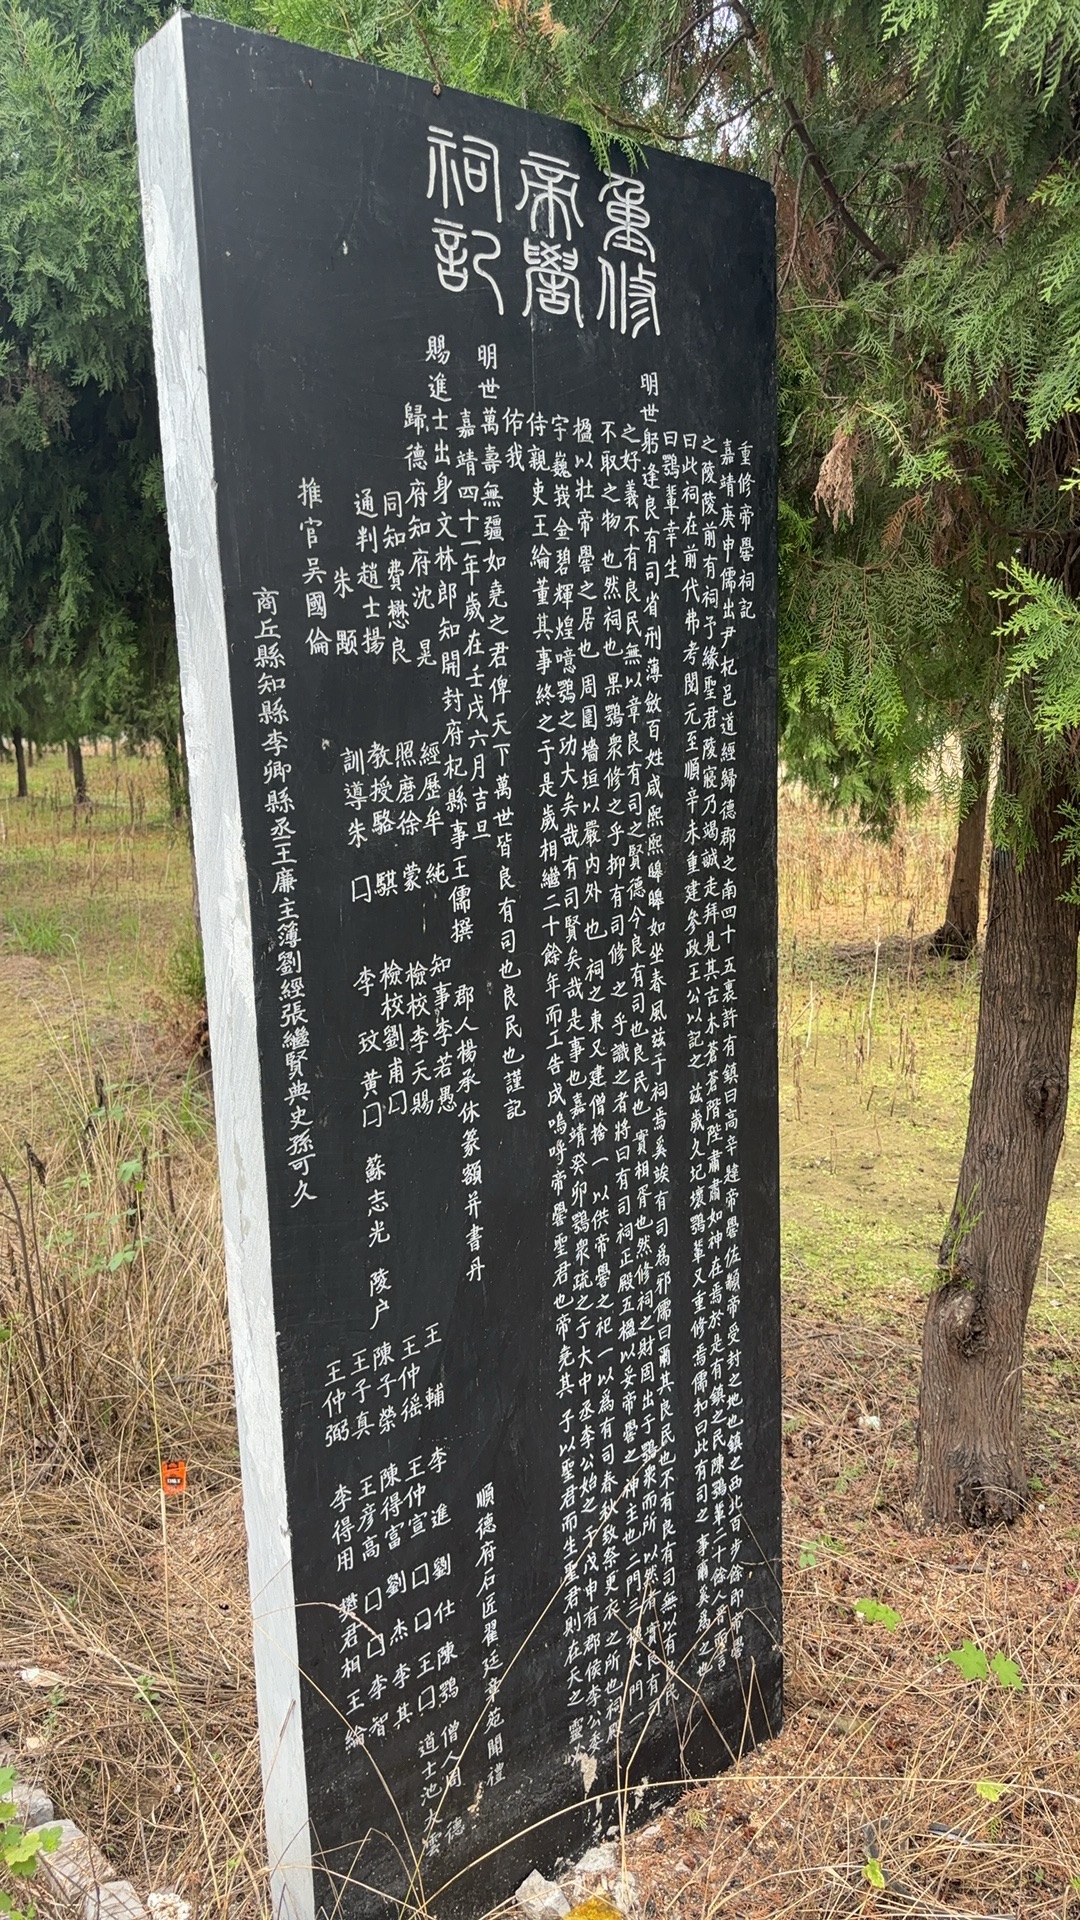 重修
帝嚳
祠記
重修帝嚳祠記
嘉靖庚申儒出尹杞邑道經歸德郡之南四十五裏許有鎮曰高辛蓋帝嚳佐顓帝受封之地也鎮之西北百步餘即帝嚳
之陵陵前有祠予緣聖君陵寢乃竭誠走拜見其古木蒼蒼階陛肅肅如神在焉於是有鎮之民陳鶚輩二十餘人
曰此祠在前代弗考閱元至順辛未重建參政王公以記之茲歲久圮壞鶚輩又重修焉儒扣曰此有司之事爾奚為之也
曰鶚輩幸生
明世躬逢良有司省刑薄斂百姓咸熙熙皞皞如坐春風茲于祠焉奚竢有司為邪儒曰爾其良民也不有良有司無以有民
之好義不有良民無以章良有司之賢德今良有司也良民也實相胥也然修祠之財固出于鶚衆而所以然者實良有司
不取之物也然祠也果鶚衆修之乎抑有司修之乎識之者將曰有司祠正殿五楹以妥帝嚳之神主也二門三楹大門一
楹以壯帝嚳之居也周圍墻垣以嚴內外也祠之東又建僧捨一以供帝嚳之祀一以為有司春秋致祭更衣之所也祠殿
宇巍峩金碧輝煌噫鶚之功大矣哉有司賢矣哉是事也嘉靖癸卯鶚衆疏之于大中丞李公始之于戊申有郡侯李公委
侍親吏王綸董其事終之于是歲相繼二十餘年而工告成嗚呼帝嚳聖君也帝堯其子以聖君而生聖君則在天之靈必
佑我
明世萬壽無疆如堯之君俾天下萬世皆良有司也良民也謹記
嘉靖四十一年歲在壬戌六月吉旦
賜進士出身文林郎知開封府杞縣事王儒撰 郡人楊承休篆額并書丹 順德府石匠翟廷章苑開禮
歸德府知府沈晃 經歷牟純 知事李若愚 王輔 李進 劉仕 陳鶚 僧人周德
同知費懋良 照磨徐蒙 檢校李天賜 王仲徭 王仲宣 口口 王口 道士池大雲
通判趙士揚 教授駱騏 檢校劉甫口 陳子榮 陳得富 劉杰 李其
朱顒 訓導朱口 李玟 黃口 蘇志光 陵户 王子真 王彥高 口口 李智
推官吳國倫 王仲弼 李得用 樊君相 王綸
商丘縣知縣李卿縣丞王廉主簿劉經張繼賢典史孫可久